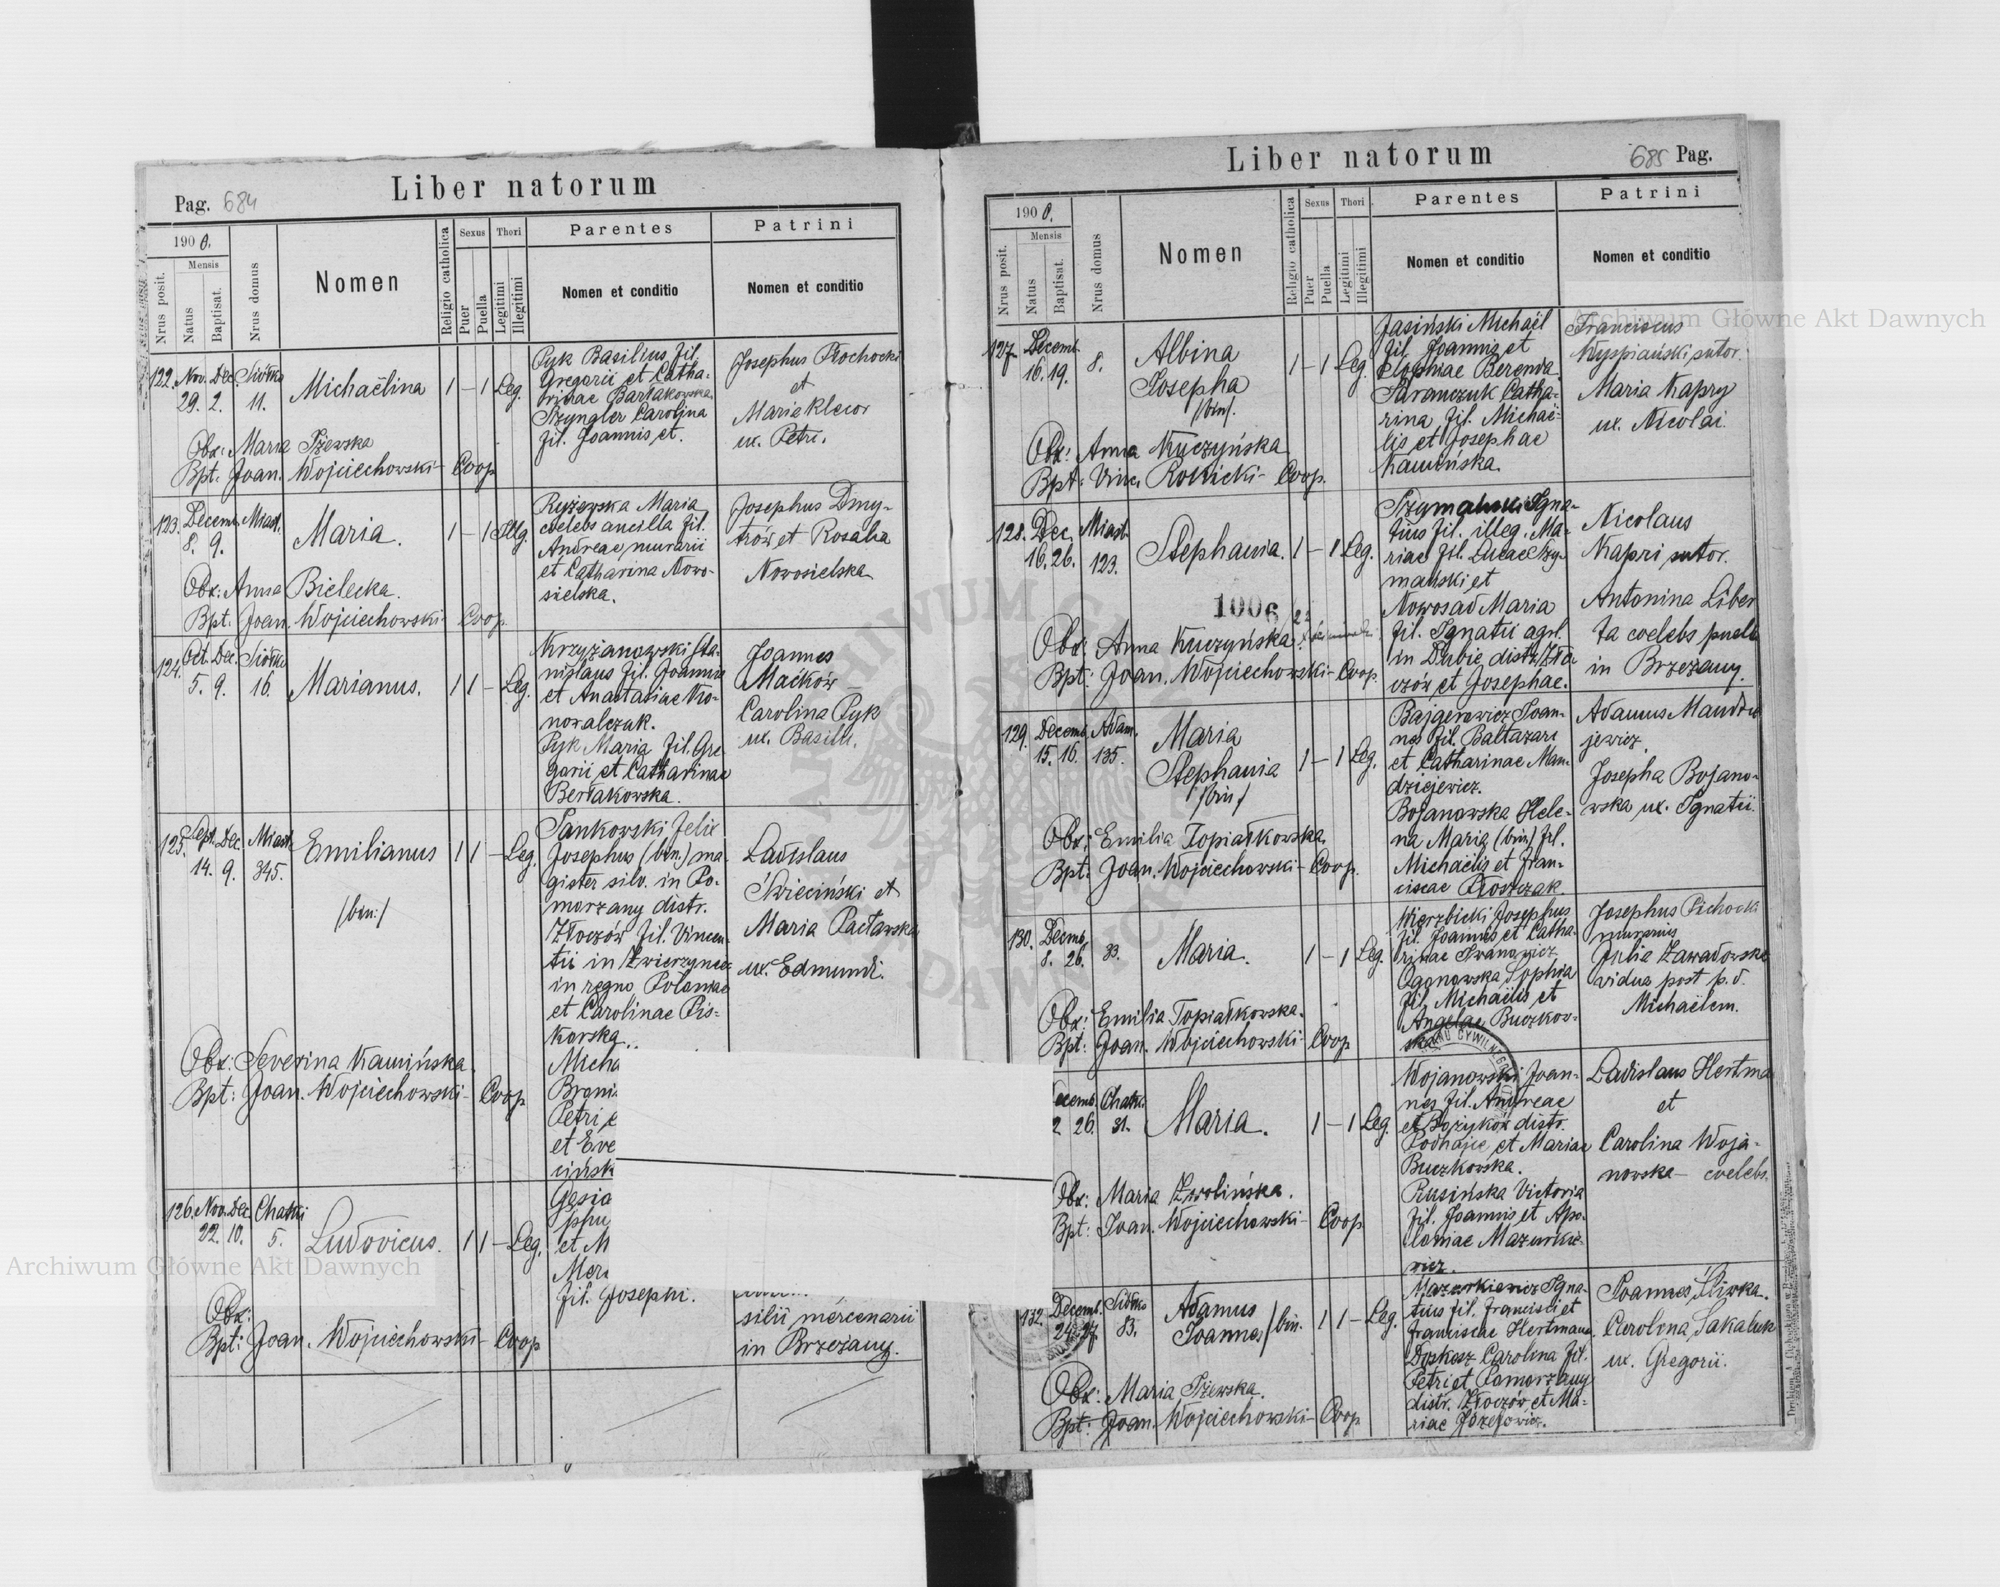 Pag. 684
Liber natorum
190 0.
Nrus posit.
Mensis
Natus
Baptisat.
Nrus domus
Nomen
Religio catholica
Sexus
Puer
Puella
Thori
Legitimi
Illegitimi
Parentes
Nomen et conditio
Patrini
Nomen et conditio
122. Nov. Dec. Siółko
29. 2. 11.
Michaëlina 1 – 1 Leg.
Pyk Basilius fil.
Gregorii et Catha-
rinae Bartakowska
Szyngler Carolina
fil. Joannis et.
Josephus Płochocki
et
Maria Klecor
ux. Petri.
Obx: Maria Iżewska
Bpt. Joan. Wojciechowski – Coop.
123. Decemb. Miast.
8. 9.
Maria. 1 – 1 Illeg.
Ryżewska Maria
coelebs ancilla fil.
Andreae murarii
et Catharina Nowo-
sielska.
Josephus Dmy-
trów et Rosalia
Nowosielska
Obx: Anna Bielecka.
Bpt. Joan. Wojciechowski – Coop.
124. Oct. Dec. Siółko
5. 9. 16.
Marianus. 1 1 – Leg.
Krzyżanowski Sta-
nislaus fil. Joannis
et Anastasiae Ko-
nowalczuk.
Pyk Maria fil. Gre
gorii et Catharinae
Bertakowska.
Joannes
Maćków
Carolina Pyk
ux. Basilii.
125. Sept. Dec. Miast.
14. 9. 345.
Emilianus 1 1 – Leg.
/bin:/
Sankowski Felix
Josephus (bin.) ma-
gister silv. in Po-
morzany distr.
Złoczów fil. Vincen-
tii in Zwierzyniec
in regno Poloniae
et Carolinae Pis-
korska..
Micha
Broni
Petri e
et Eve
cińsk
Ladislaus
Świeciński et
Maria Pacławska
ux. Edmundi.
Obx: Severina Kamińska
Bpt: Joan. Wojciechowski – Coop
126. Nov. Dec Chatki
22. 10. 5.
Ludovicus. 1 1 – Leg.
Gesio
phu
et M
Mer
fil. Josephi.
silii mercenarii
in Brzeżany.
Obx:
Bpt: Joan. Wojciechowski – Coop
Liber natorum
685 Pag.
190 0.
Nrus posit.
Mensis
Natus
Baptisat.
Nrus domus
Nomen
Religio catholica
Sexus
Puer
Puella
Thori
Legitimi
Illegitimi
Parentes
Nomen et conditio
Patrini
Nomen et conditio
127. Decemb.
16. 19. 8.
Albina
Josepha
/bin/.
1 – 1 Leg.
Jasiński Michaël
fil. Joannis et
Sophiae Berenda.
Taranczuk Catha-
rina fil. Michaë-
lis et Josephae
Kamińska.
Franciscus
Wyspiański sutor.
Maria Kapry
ux. Nicolai.
Obx: Anna Kuczyńska
Bpt: Vinc. Rokicki – Coop.
128. Dec. Miast.
16. 26. 123.
Stephania. 1 – 1 Leg.
Szymański Igna-
tius fil. illeg. Ma-
riae fil. Lucae Szy-
mański et
Nowosad Maria
fil. Ignatii agrl.
in Dubie distr. Zło-
czów et Josephae.
Nicolaus
Kapri sutor.
Antonina Liber
ta coelebs puella
in Brzeżany.
1006
Obx: Anna Kuczyńska
Bpt: Joan. Wojciechowski – Coop.
129. Decemb. Adam.
15. 16. 135.
Maria
Stephania
/bin/
1 – 1 Leg.
Bajgerowicz Joan-
nes fil. Baltazari
et Catharinae Man-
dziejewicz.
Bojanowska Hele-
na Maria (bin) fil.
Michaëlis et Fran-
ciscae Płoszczak
Adamus Mandzie
jewicz.
Josepha Bojano-
wska ux. Ignatii.
Obx: Emilia Topiałkowska
Bpt: Joan. Wojciechowski – Coop.
130. Decemb.
8. 26. 33.
Maria. 1 – 1 Leg.
Wierzbicki Josephus
fil. Joannis et Catha-
rinae Iwanowicz
Ogonowska Sophia
fil. Michaëlis et
Angelae Buczkow-
ska
Josephus Pichocki
murarius
Julia Zawadowska
vidua post p. d.
Michaëlem.
Obx: Emilia Topiałkowska.
Bpt: Joan. Wojciechowski – Coop
ecemb. Chatki
2 26. 31.
Maria. 1 – 1 Leg.
Wojanowski Joan-
nes fil. Andreae
et Bożyków distr.
Podhajce et Mariae
Buczkowska.
Rusińska Victoria
fil. Joannis et Apo-
loniae Mazurkie-
wicz.
Ladislaus Hertma
et
Carolina Woja-
nowska – coelebs.
Obx: Maria Zwolińska.
Bpt: Joan. Wojciechowski – Coop
132. Decemb. Siółko
24. 27. 83.
Adamus
Joannes /bin. 1 1 – Leg.
Mazurkiewicz Igna-
tius fil. Francisci et
Franciscae Hertmann.
Doskosz Carolina fil.
Petri et Pomorzany
distr. Złoczów et Ma-
riae Józefowicz.
Joannes Śliwka.
Carolina Sakaluk
ux. Gregorii.
Obx: Maria Iżewska.
Bpt: Joan. Wojciechowski – Coop
Archiwum Główne Akt Dawnych
Archiwum Główne Akt Dawnych